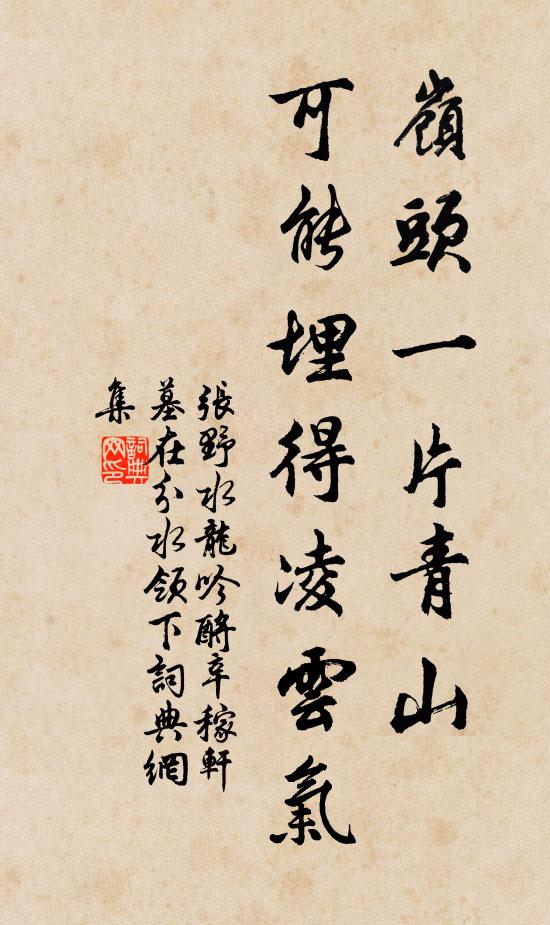 嶺頭一片青山
可能埋得凌雲氣
張野水龍吟酹辛稼軒
墓在分水領下詞典網
集
詞典
网印